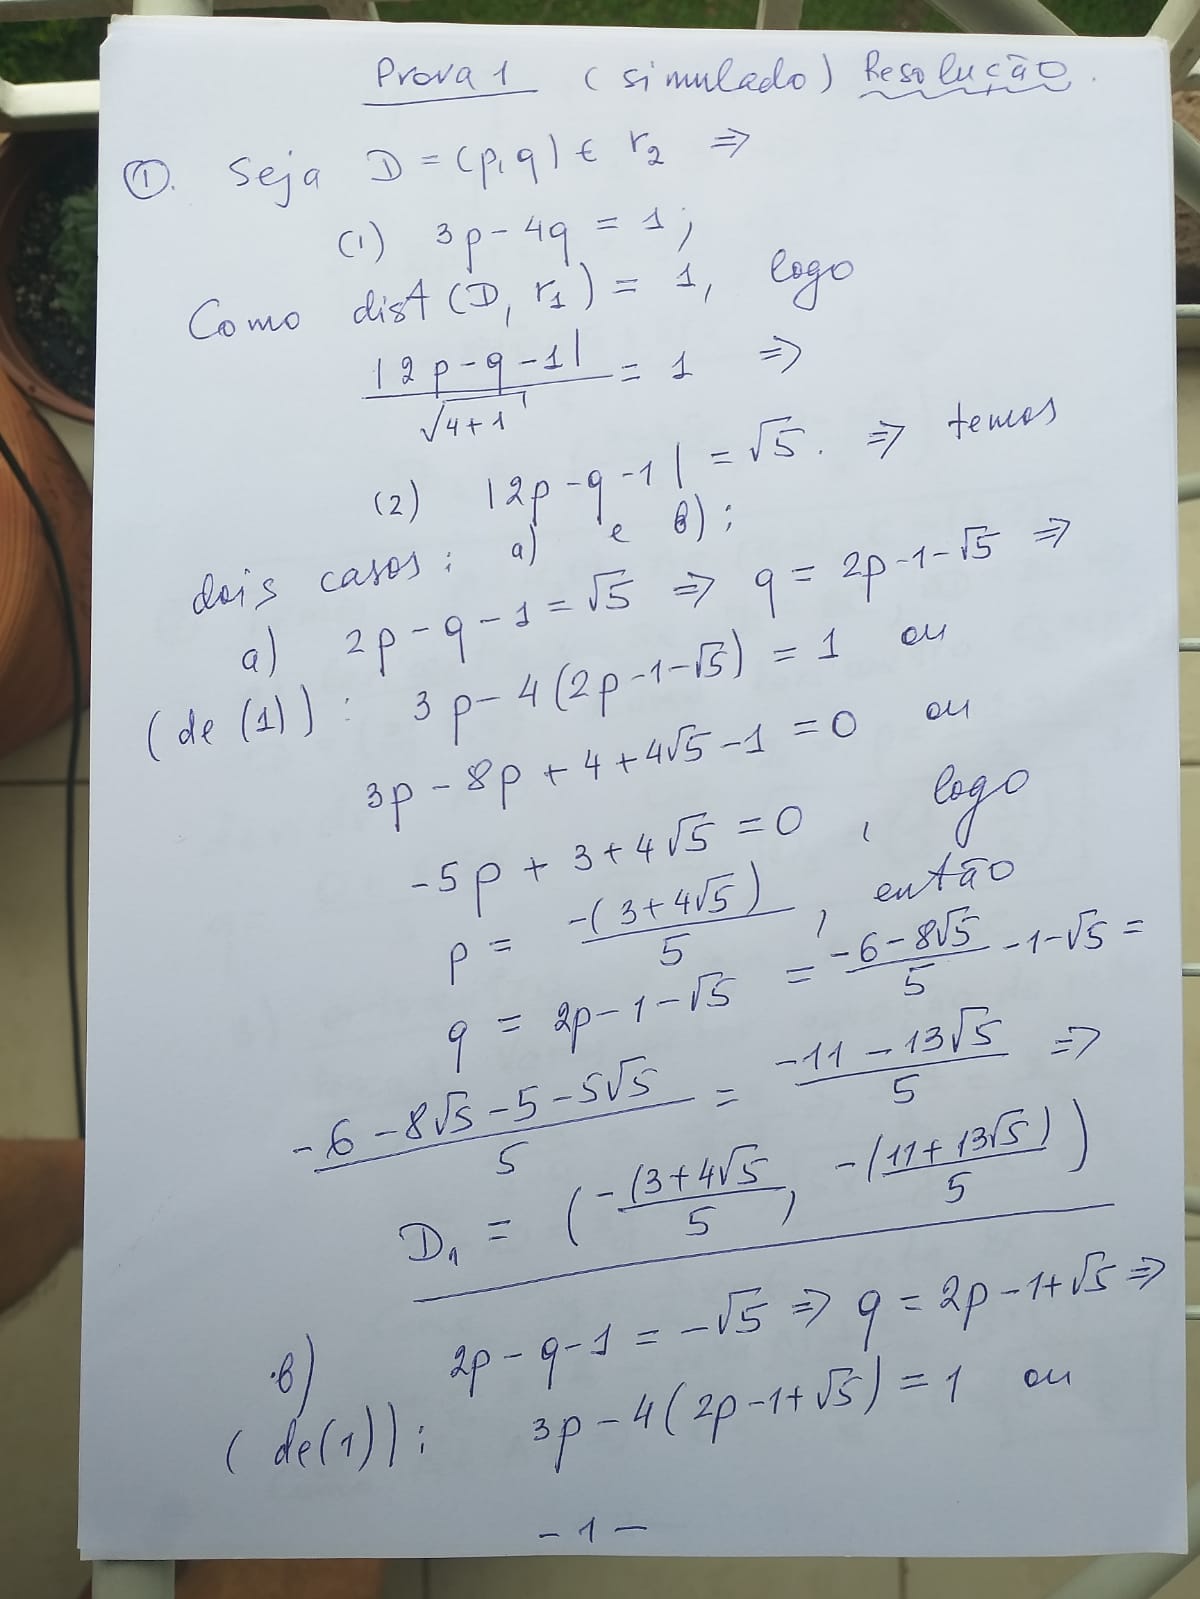 Prova 1 (simulado) Resolução.
①. Seja D = (p, q) ∈ r₂ ⇒
(1) 3p - 4q = 1;
Como dist (D, r₁) = 1, logo
|2p - q - 1| / √(4+1) = 1 ⇒
(2) |2p - q - 1| = √5. ⇒ temos
dois casos: a) e b);
a) 2p - q - 1 = √5 ⇒ q = 2p - 1 - √5 ⇒
(de (1)): 3p - 4(2p - 1 - √5) = 1 ou
3p - 8p + 4 + 4√5 - 1 = 0 ou
-5p + 3 + 4√5 = 0, logo
p = -(3 + 4√5) / 5, então
q = 2p - 1 - √5 = (-6 - 8√5) / 5 - 1 - √5 =
(-6 - 8√5 - 5 - 5√5) / 5 = (-11 - 13√5) / 5 ⇒
D₁ = (-(3 + 4√5 / 5, -(11 + 13√5) / 5)
b) 2p - q - 1 = -√5 ⇒ q = 2p - 1 + √5 ⇒
(de (1)): 3p - 4(2p - 1 + √5) = 1 ou
- 1 -